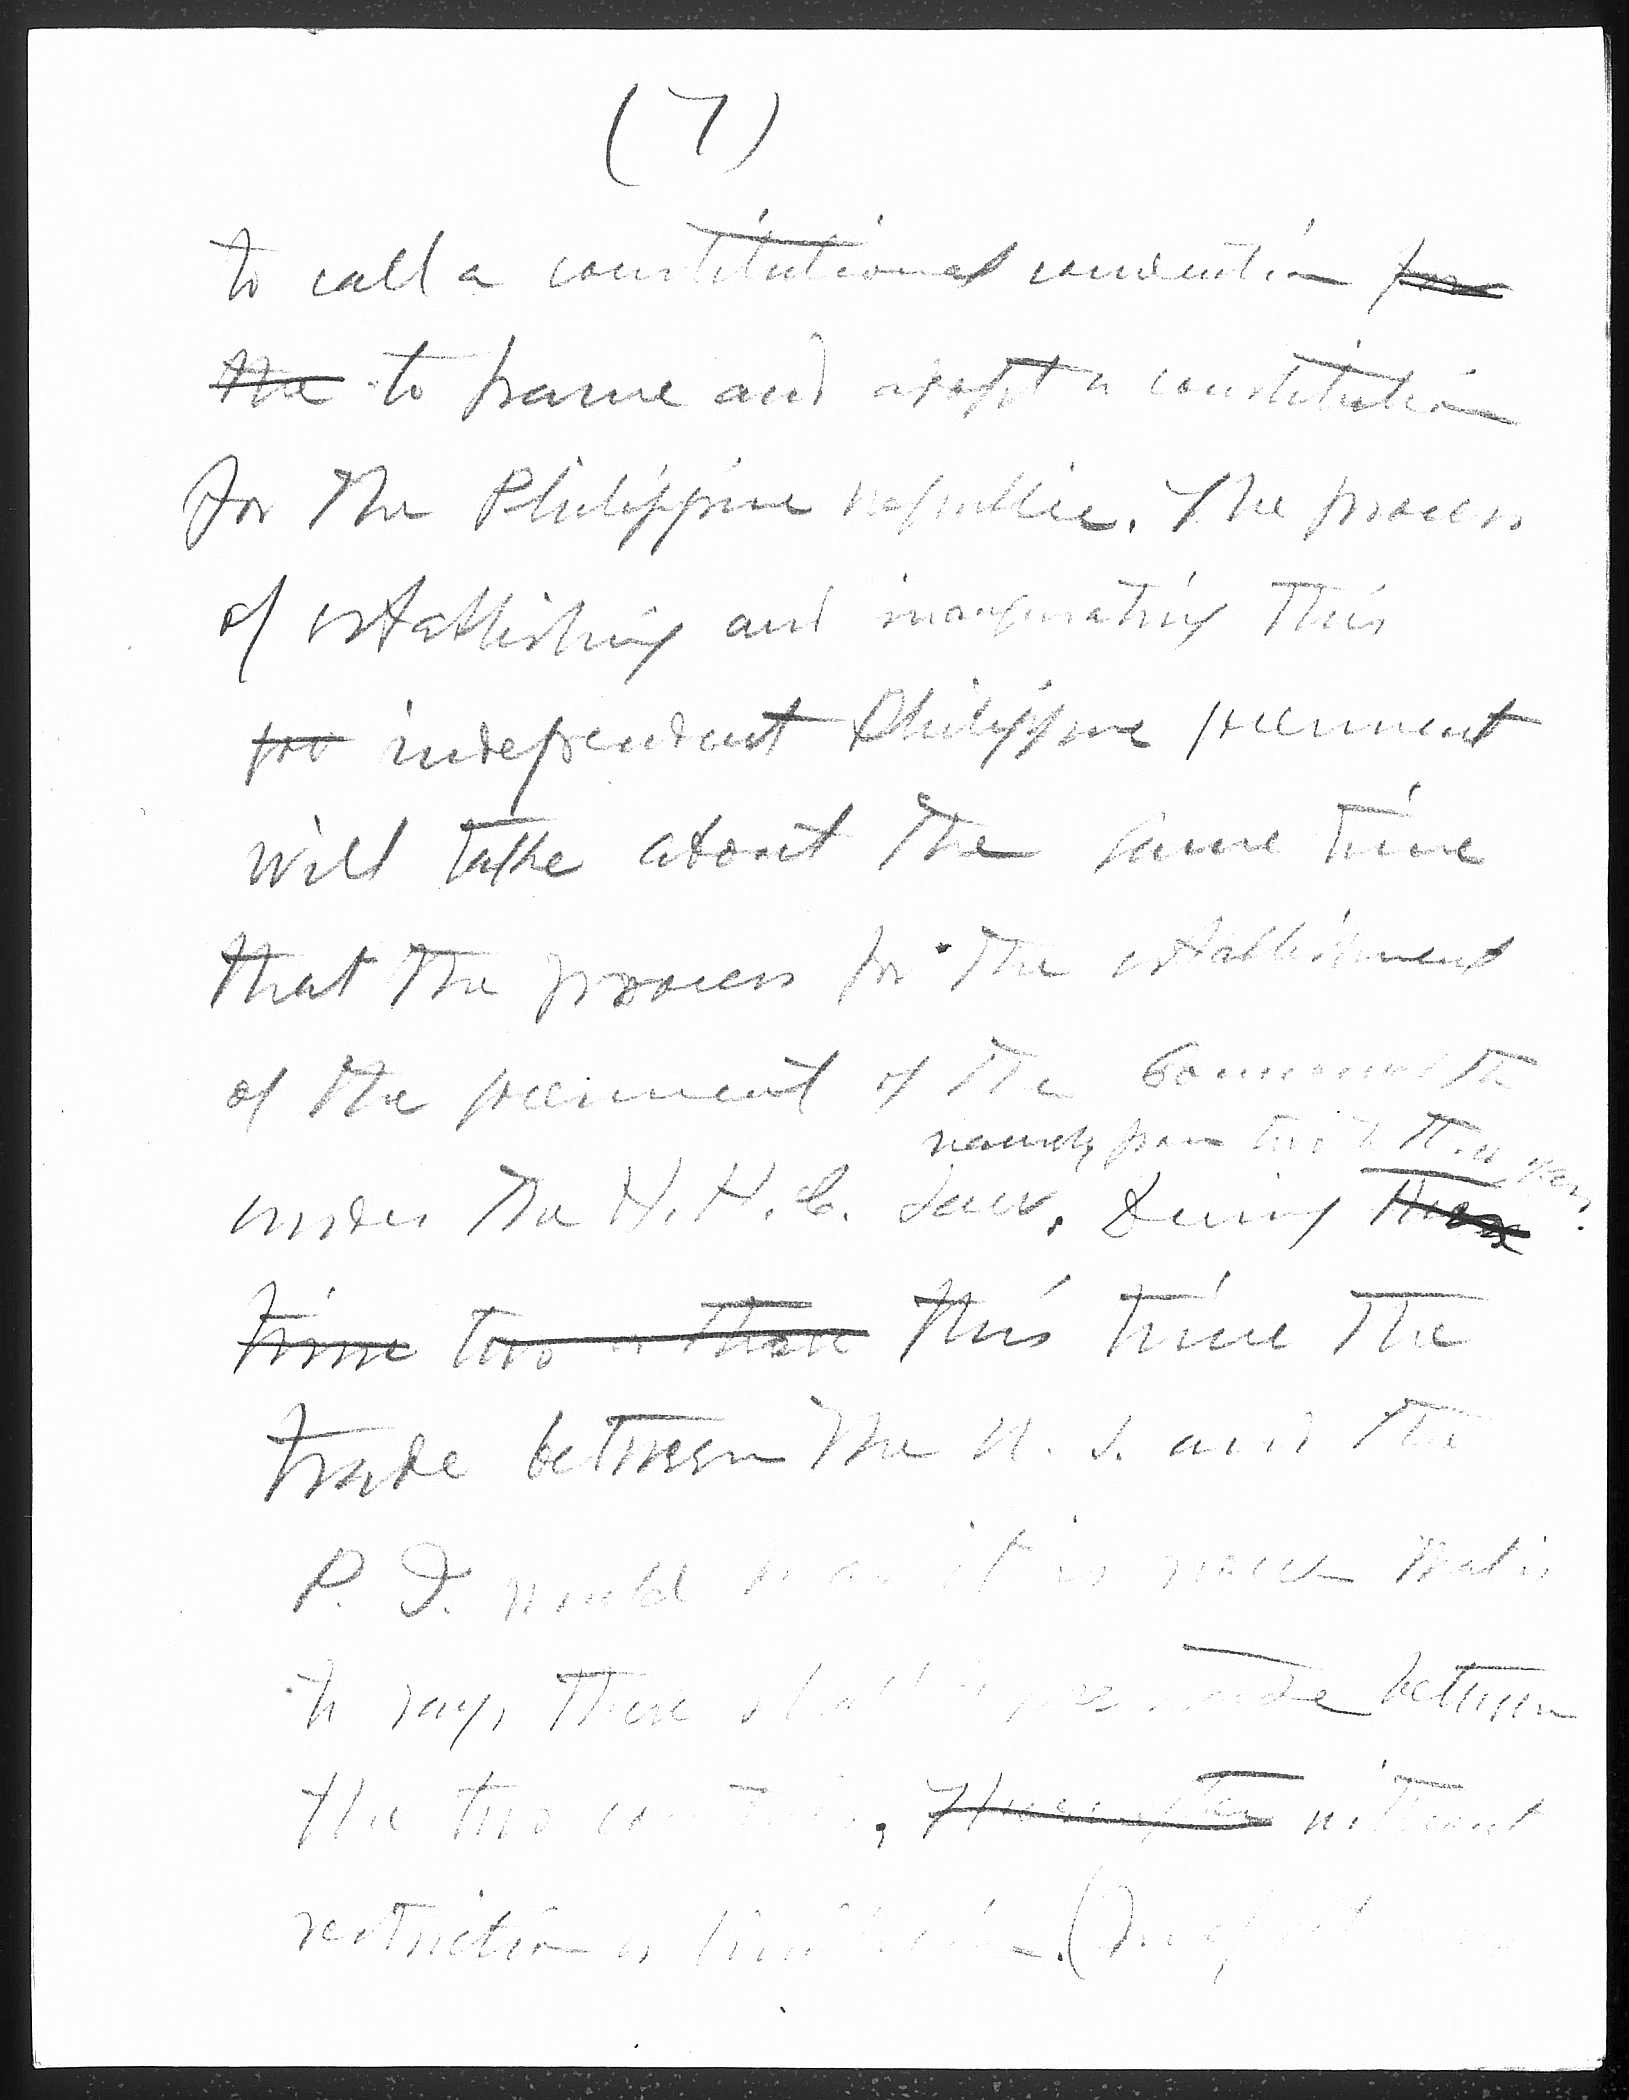 (7)
to call a constitutional convention for
the to frame and adopt a constitution
for the Philippine republic. The process
of establishing and inaugurating this
gov independent Philippine government
will take about the same time
that the process for the establishment
of the government of the Commonwealth
namely from two to three years.
under the H. H. C. Law. During these
time two or three this time the
trade between the U. S. and the
P. I. would be as it is now that is
to say, there shall be free trade between
the two countries, Thereafter without
restriction or limitation. (